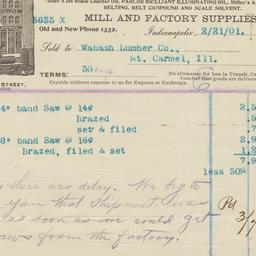 MILL AND FACTORY SUPPLIES
BELTING, BELT COMPOUND AND SCALE SOLVENT.
5633 X
Old and New Phone 1332.
Indianapolis, 2/21/01.
Sold to Wabash Lumber Co.,
Mt. Carmel, Ill.
STREET,
TERMS: 30
No allowance for loss in Transit,
Payable without expense to us for Express or Exchange.
4" band Saw @ 14¢ 2.5
Brazed .5
set & filed
8" band Saw @ 16¢ 2.9
Brazed, filed & set 1.2
7.9
less 50%
there was delay. We beg to
you that shipment was
Pd
as soon as we could get
3/
saws from the factory.